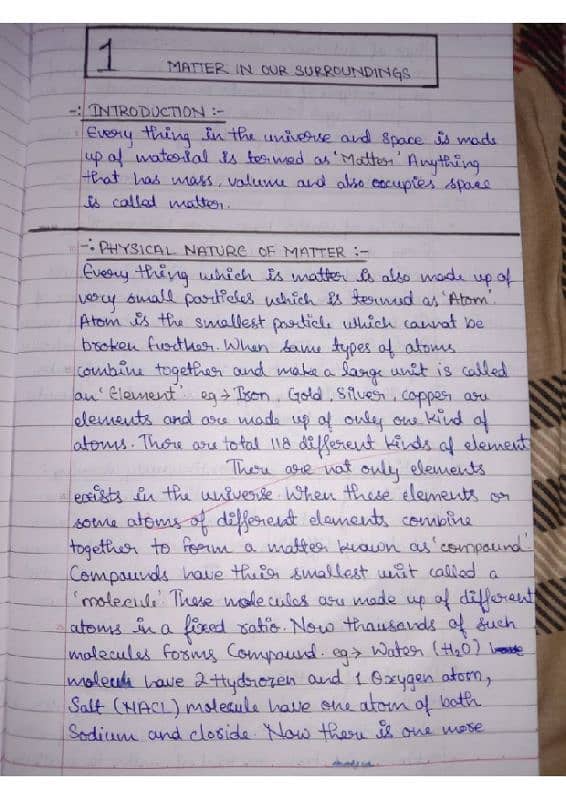 1 MATTER IN OUR SURROUNDINGS
-: INTRODUCTION :-
Every thing in the universe and space is made
up of material is termed as 'Matter' Anything
that has mass, volume and also occupies space
is called matter.
-: PHYSICAL NATURE OF MATTER :-
Every thing which is matter is also made up of
very small particles which is termed as 'Atom'.
Atom is the smallest particle which cannot be
broken further. When same types of atoms
combine together and make a large unit is called
an 'Element'. eg → Iron, Gold, Silver, copper are
elements and are made up of only one kind of
atoms. There are total 118 different kinds of element
There are not only elements
exists in the universe. When these elements or
some atoms of different elements combine
together to form a matter known as 'compound'.
Compounds have their smallest unit called a
'molecule'. These molecules are made up of different
atoms in a fixed ratio. Now thousands of such
molecules forms Compound. eg → Water (H2O)
molecule have 2 Hydrozen and 1 Oxygen atom,
Salt (NACL) molecule have one atom of both
Sodium and closide. Now there is one more